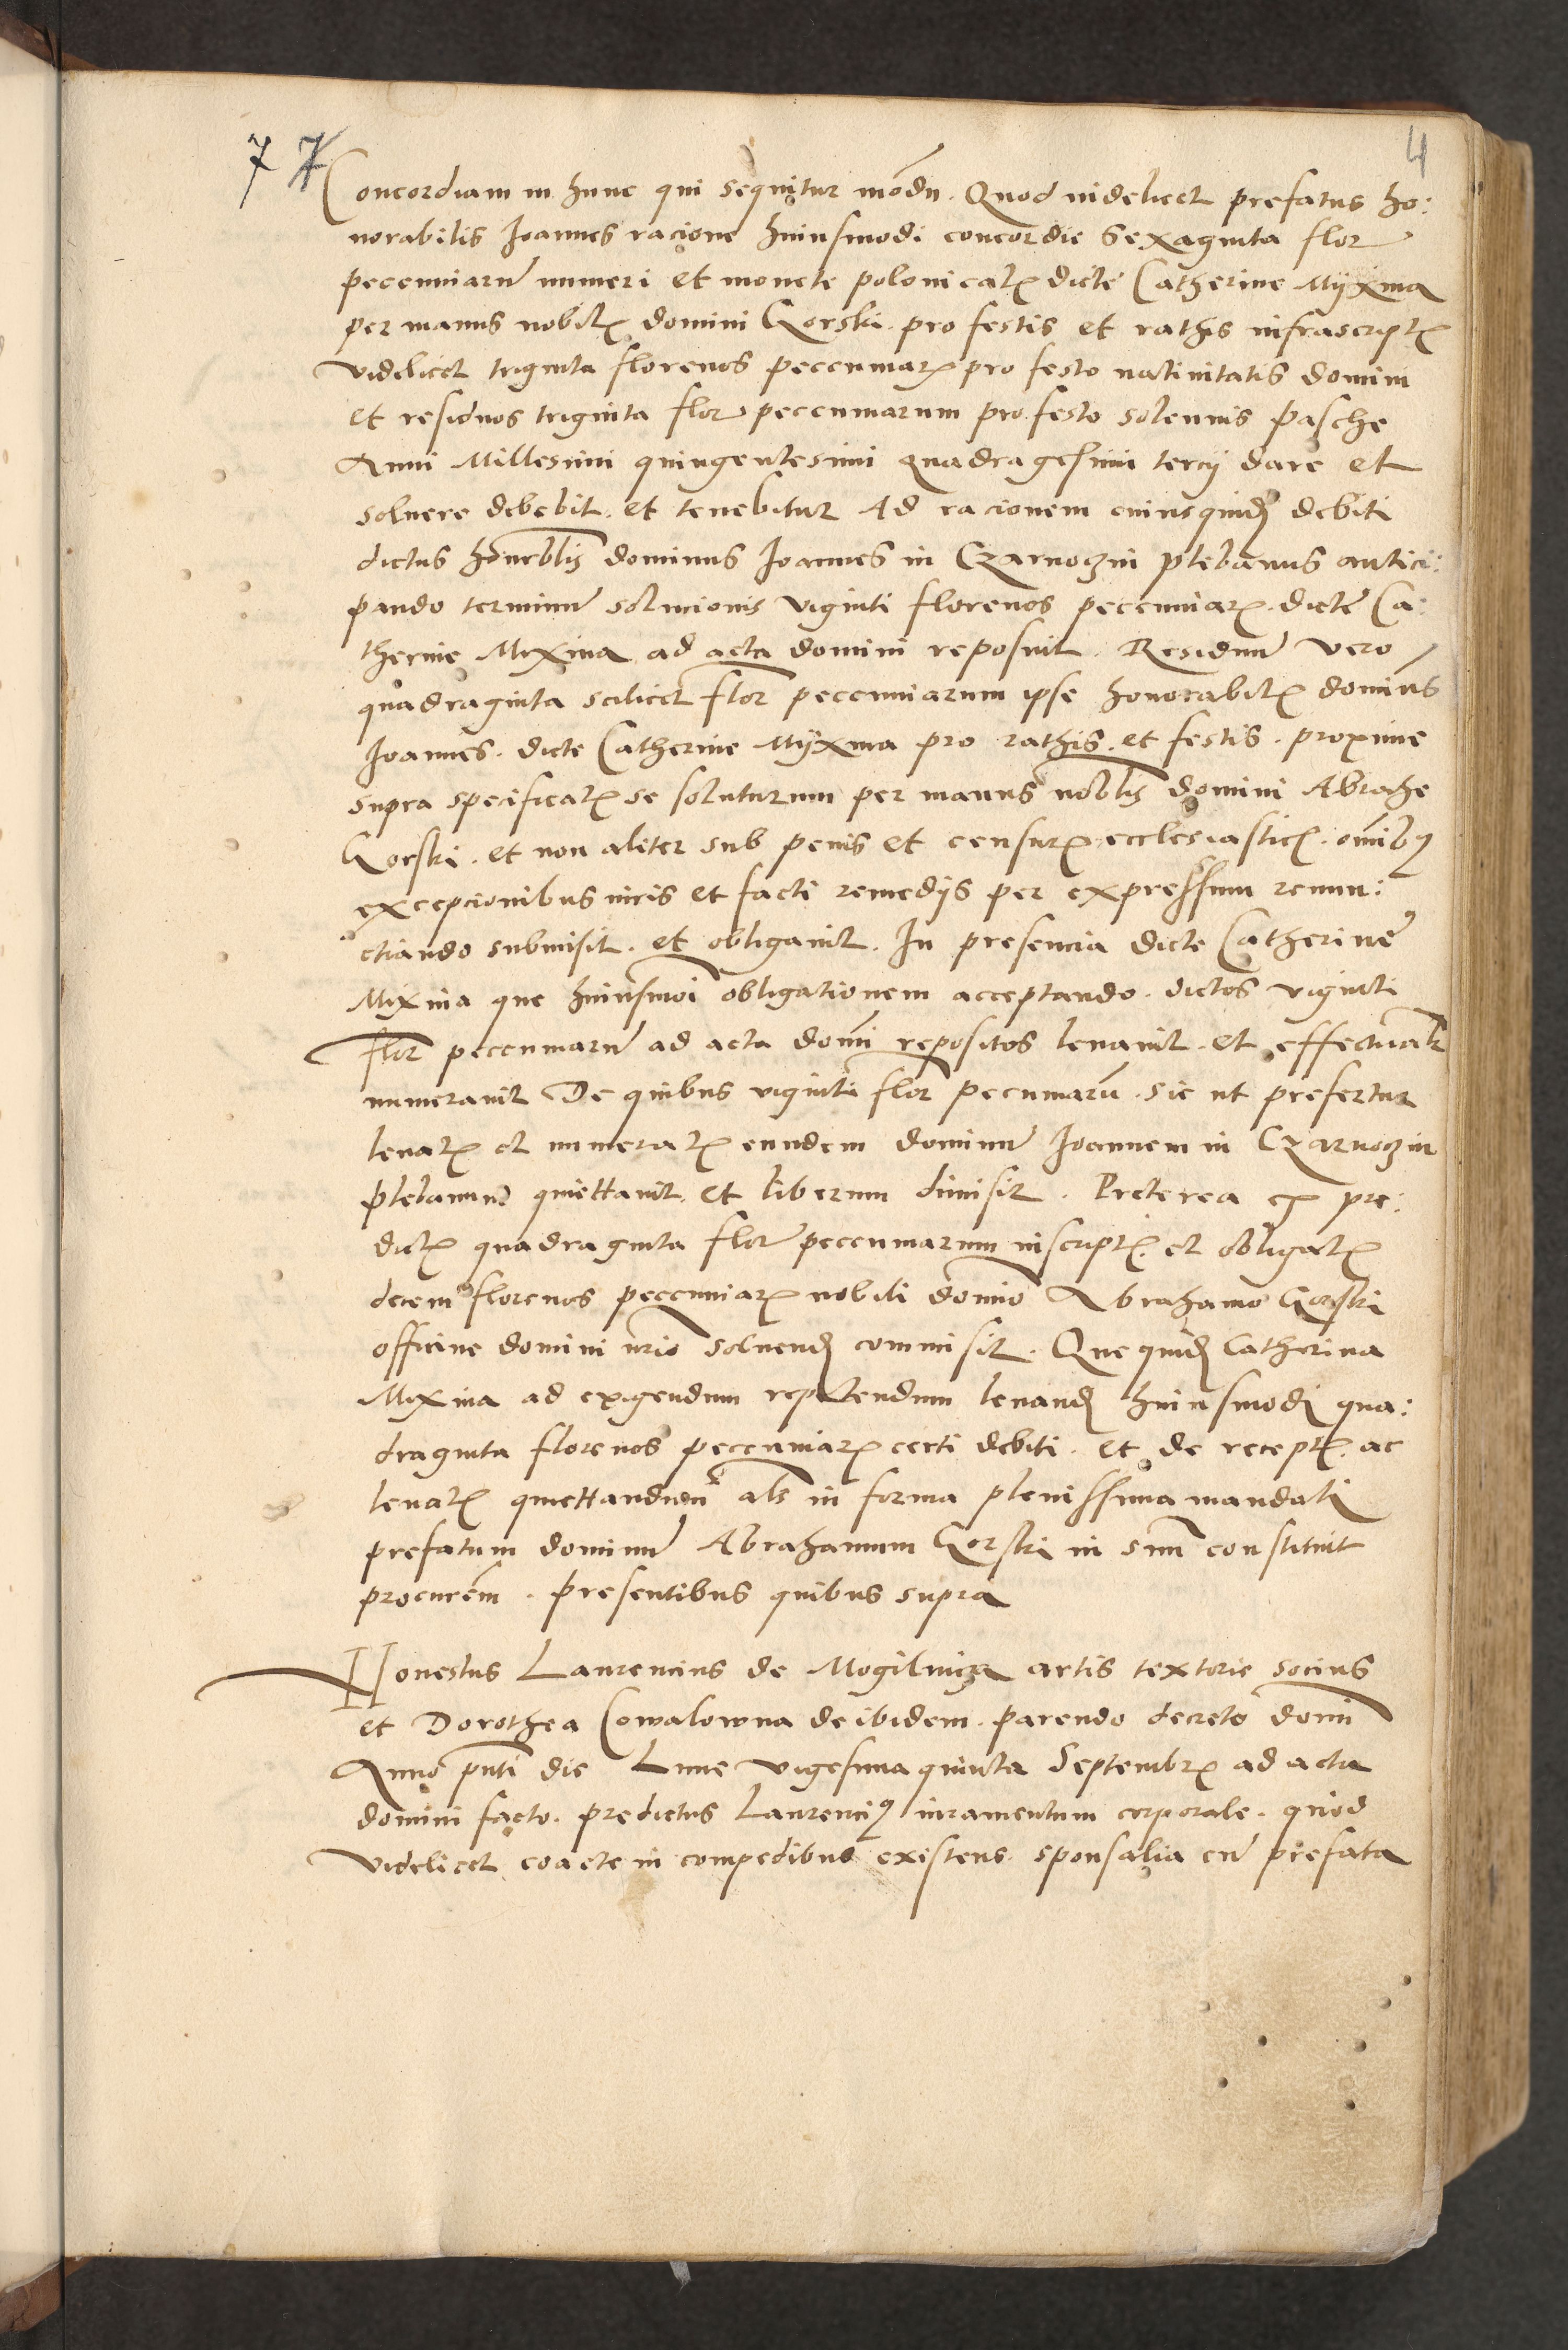 7 7 4
Concordiam in hunc qui sequitur modu. Quod videlicet prefatus ho:
norabilis Joannes racione huiusmodi concordie Sexaginta flor
peccuniaru numeri et monete polonicat dicte Catherine Myxina
per manus nobilis domini Gorski pro festis et rathis infrascript
videlicet triginta florenos peccuniar pro festo nativitatis domini
et residuos triginta flor peccuniarum pro festo solennis pasche
Anni Millesimi quingentesimi quadragesimi tercij dare et
soluere debebit. et tenebitur Ad racionem cuiusquid debiti
dictus honrblis dominus Joannes in Czarnoczin plebanus antici:
pando terminu solucionis viginti florenos peccuniar. dicte Ca:
therine Mixina ad acta domini reposuit. Residuu vero
quadraginta scilicet flor peccuniarum ipse honorabilis dominus
Joannes. dicte Catherine Myxina pro rathis. et festis. proxime
supra specificat se soluturum per manus nobilis domini Abrahe
Gorski. et non aliter sub penis et censur ecclesiastic. omnibus
excepcionibus iuris et facti remedijs per expressum renun:
ctiando submisit. et obligauit. In presencia dicte Catherine
Mixina que huiusmoi obligationem acceptando. dictos viginti
flor peccuniaru ad acta domi repositos leuauit. et effectualr
numerauit De quibus viginti flor peccuniaru. sic ut prefertur
leuat et numerat eundem dominu Joannem in Czarnoczin
plebanum quiettauit. et liberum dimisit. Preterea ex pre:
dict quadraginta flor peccuniarum inscript. et obligat
decem florenos peccuniar nobili domio Abrahamo Gorski
officine domini nrio soluend commisit. Que quid Catherina
Mixina ad exigendum repetendum leuand huiusmodi qua:
draginta florenos peccuniar certi debiti. et de recept. ac
leuat quiettandum als in forma plenissima mandati
prefatum dominu Abrahamum Gorski in suu constituit
procurem. presentibus quibus supra
Honestus Laurencius de Mogilnicza artis textorie socius
et Dorothea Cowalowna de ibidem. parendo decreto domi
Anno pnti die Lune vigesima quinta Septembr ad acta
domini facto. predictus Laurencius iuramentum corporale. quod
videlicet coacte in compedibus existens. sponsalia cu prefata